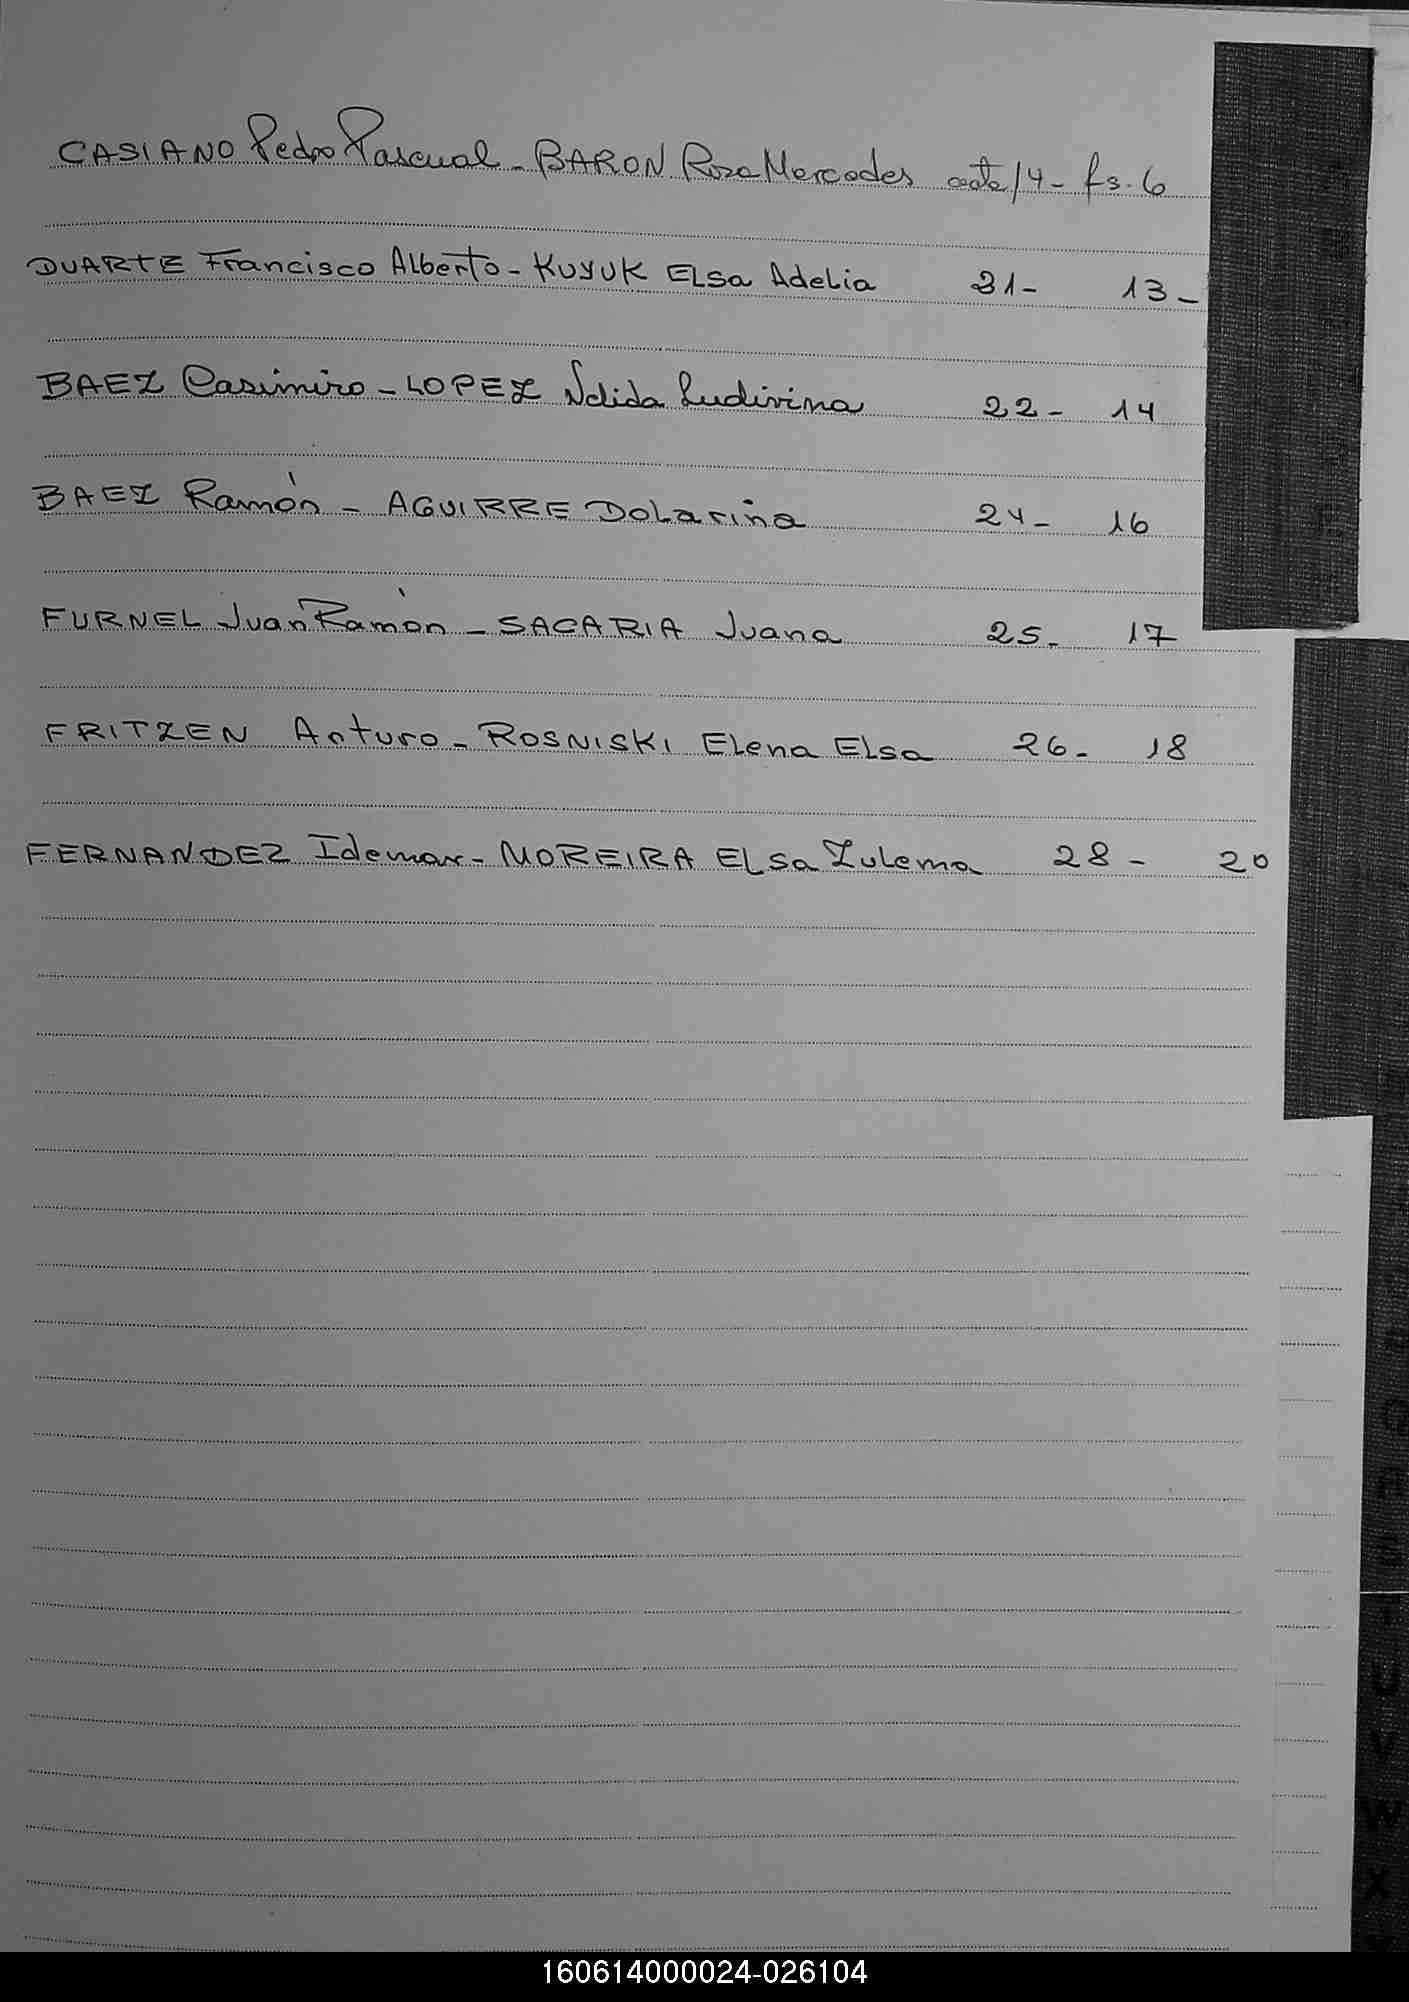 CASIANO Pedro Pascual - BARON Rosa Mercedes acta 14 - fs. 6
DUARTE Francisco Alberto - KUYUK ELsa Adelia 21 - 13 -
BAEZ Casimiro - LOPEZ Nélida Ludivina 22 - 14
BAEZ Ramón - AGUIRRE DoLariña 24 - 16
FURNEL Juan Ramón - SACARIA Juana 25. 17
FRITZEN Arturo - ROSNISKI ELena ELsa 26 - 18
FERNANDEZ Idemar - MOREIRA ELsa Zulema 28 - 20
U
V
W
X
160614000024-026104